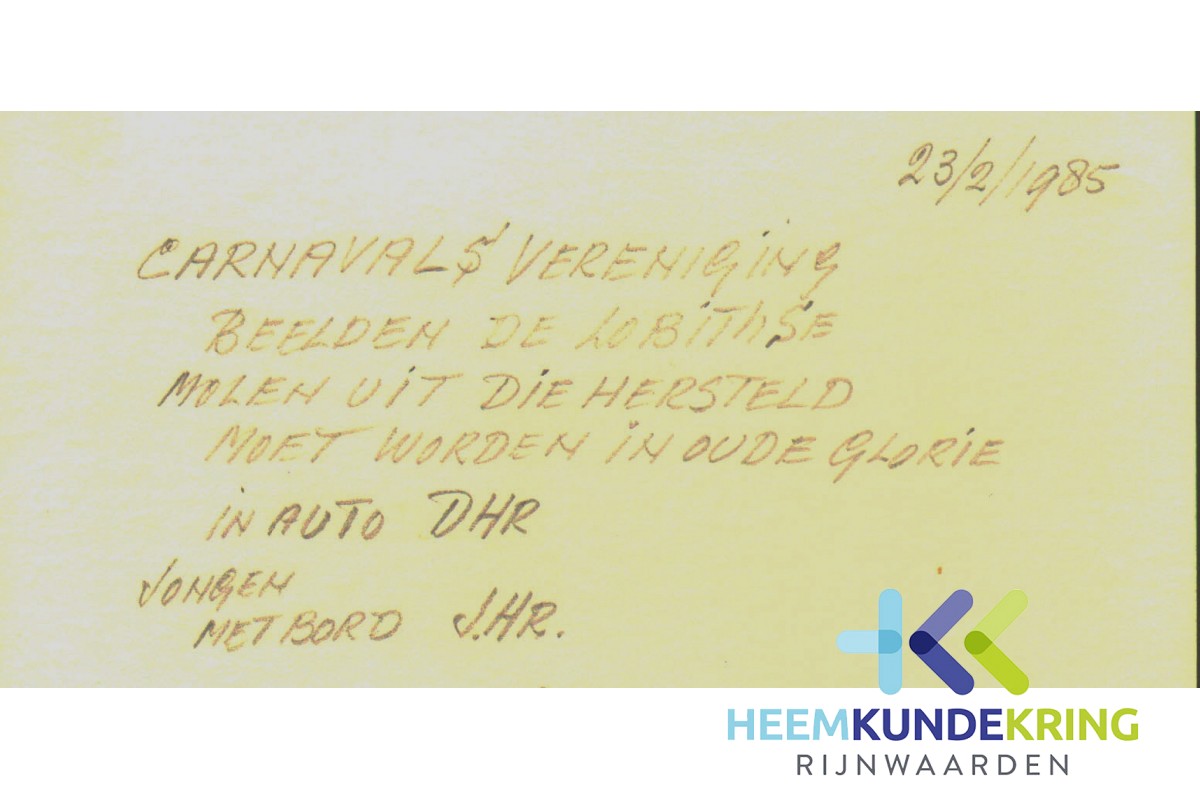 23/2/1985
CARNAVALS VERENIGING
BEELDEN DE LOBITHSE
MOLEN UIT DIE HERSTELD
MOET WORDEN IN OUDE GLORIE
IN AUTO DHR
JONGEN
MET BORD J.HR.
HEEMKUNDEKRING
RIJNWAARDEN